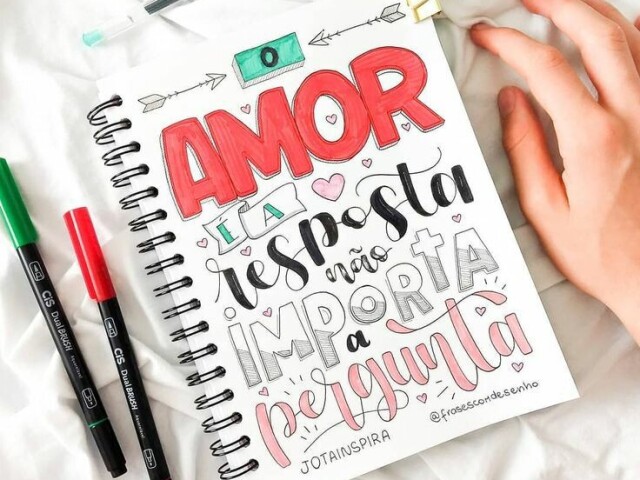 O
AMOR
É A
resposta
não
IMPORTA
a
pergunta
@frasescomdesenho
JOTAINSPIRA
CiS Dual BRUSH
CiS Dual BRUSH